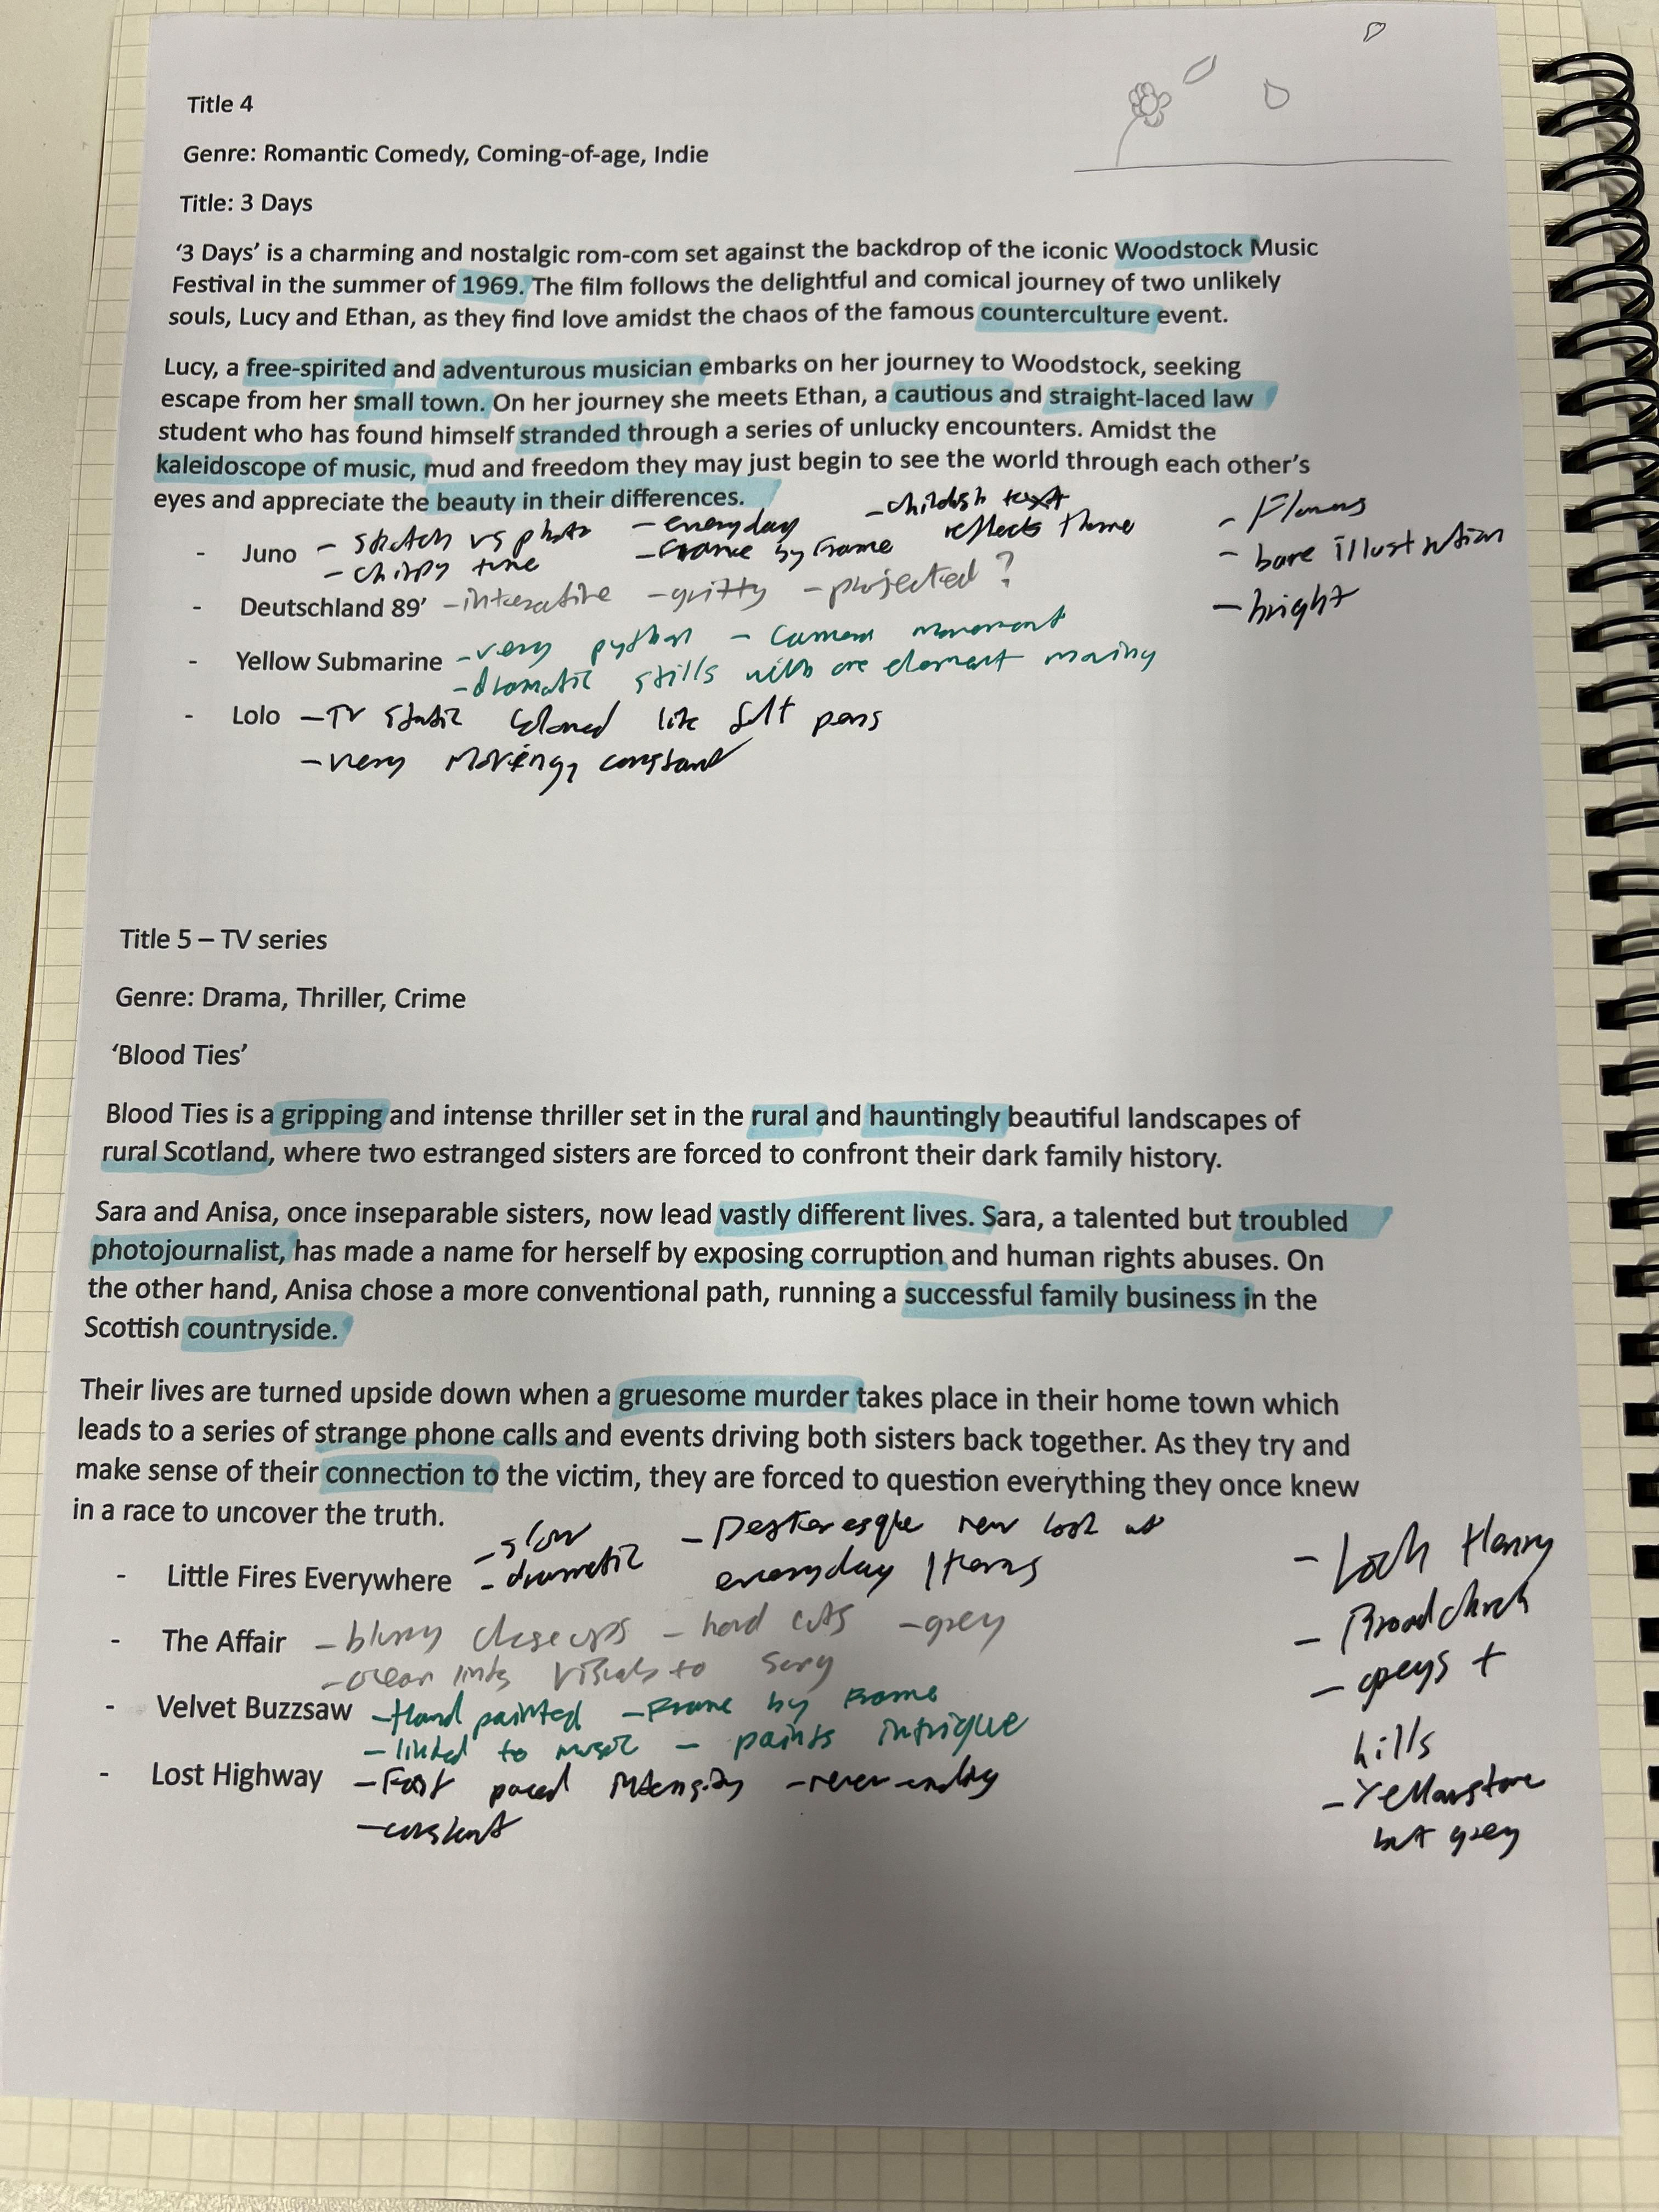 Title 4
Genre: Romantic Comedy, Coming-of-age, Indie
Title: 3 Days
‘3 Days’ is a charming and nostalgic rom-com set against the backdrop of the iconic Woodstock Music
Festival in the summer of 1969. The film follows the delightful and comical journey of two unlikely
souls, Lucy and Ethan, as they find love amidst the chaos of the famous counterculture event.
Lucy, a free-spirited and adventurous musician embarks on her journey to Woodstock, seeking
escape from her small town. On her journey she meets Ethan, a cautious and straight-laced law
student who has found himself stranded through a series of unlucky encounters. Amidst the
kaleidoscope of music, mud and freedom they may just begin to see the world through each other’s
eyes and appreciate the beauty in their differences.
- Juno - sketch vs photo - everyday - childish text
- chirpy tune - Frame by Frame reflects theme
- Deutschland 89’ - interactive - gritty - projected ?
- Yellow Submarine - very python - Camera movement
- dramatic stills with one element moving
- Lolo - TV static coloured like felt pens
- very moving, constant
- Flowers
- bare illustration
- bright
Title 5 – TV series
Genre: Drama, Thriller, Crime
‘Blood Ties’
Blood Ties is a gripping and intense thriller set in the rural and hauntingly beautiful landscapes of
rural Scotland, where two estranged sisters are forced to confront their dark family history.
Sara and Anisa, once inseparable sisters, now lead vastly different lives. Sara, a talented but troubled
photojournalist, has made a name for herself by exposing corruption and human rights abuses. On
the other hand, Anisa chose a more conventional path, running a successful family business in the
Scottish countryside.
Their lives are turned upside down when a gruesome murder takes place in their home town which
leads to a series of strange phone calls and events driving both sisters back together. As they try and
make sense of their connection to the victim, they are forced to question everything they once knew
in a race to uncover the truth.
- Little Fires Everywhere - slow - new look at
- dramatic everyday items
- The Affair - blurry closeups - hard cuts - grey
- ocean links visuals to song
- Velvet Buzzsaw - Hand painted - Frame by Frame
- linked to music - paints intrigue
- Lost Highway - Fast paced intensity - never-ending
- constant
- Loch Henry
- Broadchurch
- greys +
hills
- Yellowstone
but grey